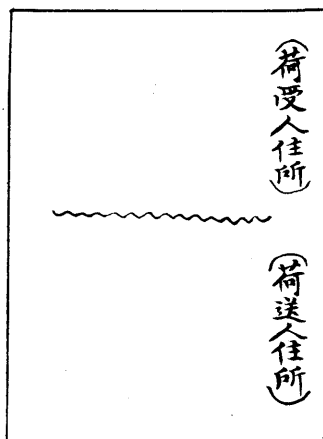 （荷受人住所）
（荷送人住所）